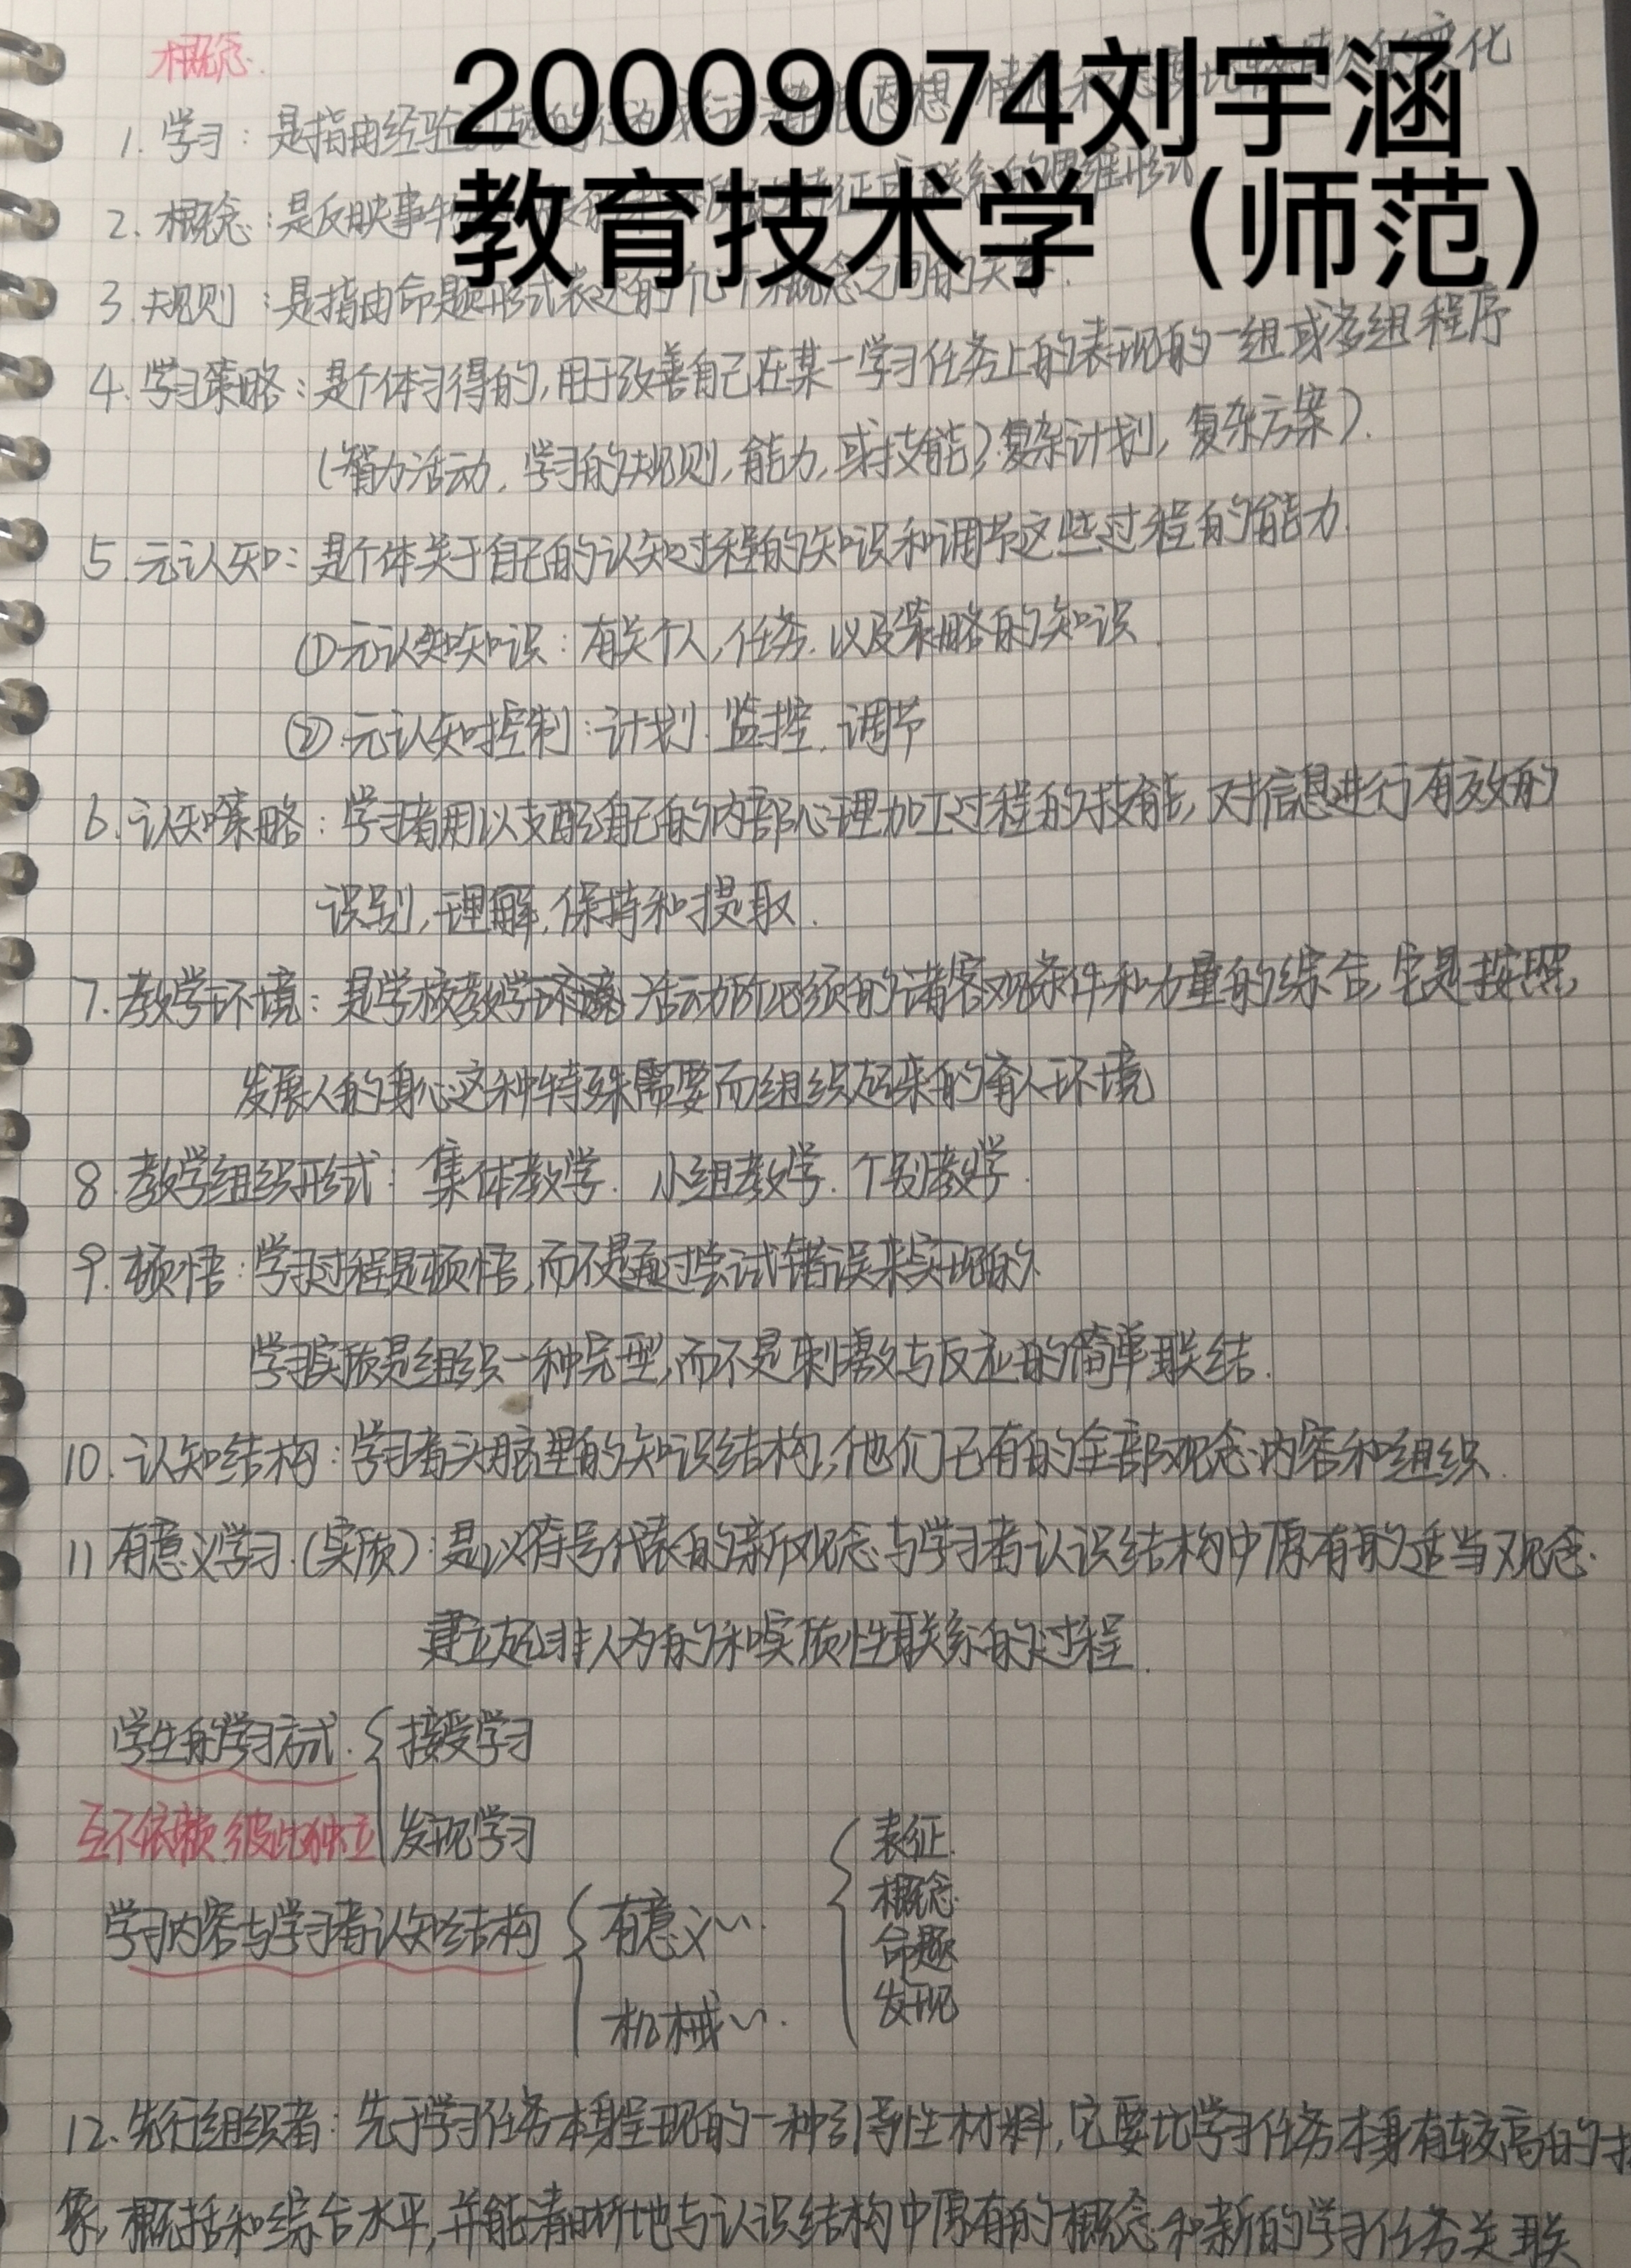 概念.
20009074刘宇涵
教育技术学（师范）
1. 学习：是指由经验引起的行为 化
2. 概念：是反映事物 特征或联系的思维形式
3. 规则：是指由命题形式表达的几个概念之间的关系.
4. 学习策略：是个体习得的,用于改善自己在某一学习任务上的表现的一组或多组程序
(智力活动, 学习的规则, 能力, 或技能, 复杂计划, 复杂方案).
5. 元认知：是个体关于自己的认知过程的知识和调节这些过程的能力.
①元认知知识：有关个人,任务.以及策略的知识.
②.元认知控制：计划.监控.调节
6. 认知策略：学习者用以支配自己的内部心理加工过程的技能,对信息进行有效的
识别,理解,保持和提取.
7. 教学环境：是学校教学环境活动所必须的诸客观条件和力量的综合,它是按照
发展人的身心这种特殊需要而组织起来的育人环境
8. 教学组织形式：集体教学. 小组教学. 个别教学.
9. 顿悟：学习过程是顿悟,而不是通过尝试错误来实现的
学习实质是组织一种完型,而不是刺激与反应的简单联结.
10. 认知结构：学习者头脑里的知识结构,他们已有的全部观念内容和组织.
11 有意义学习.(实质)：是以符号代表的新观念与学习者认识结构中原有的适当观念.
建立起非人为的和实质性联系的过程.
学生的学习方式. 接受学习
互不依赖 彼此独立 发现学习
学习内容与学习者认知结构 有意义~. 机械~.
表征.
概念.
命题
发现
12. 先行组织者：先于学习任务本身呈现的一种引导性材料,它要比学习任务本身有较高的抽
象,概括和综合水平,并能清晰地与认识结构中原有的概念和新的学习任务关联